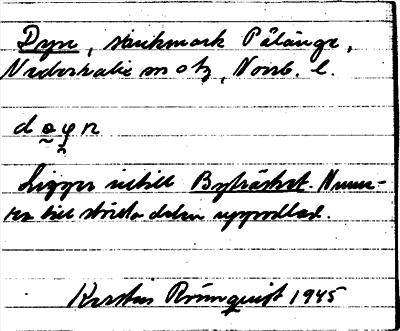 Dyn, sankmark Pålänge,
Nederkalix sn o tz, Norrb. l.
d ə̰ y̭ n
Ligger intill Byträsket. Nume-
ra till största delen uppodlad.
Kerstin Rönnquist 1945